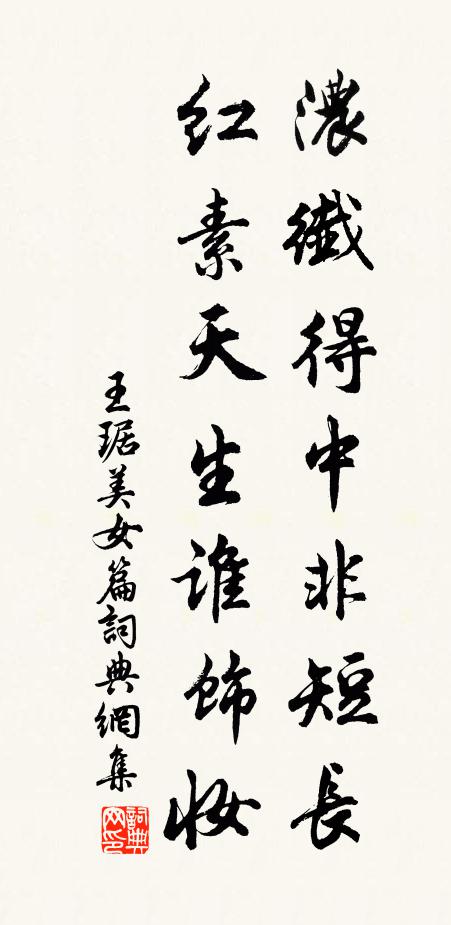 濃纖得中非短長
紅素天生誰飾妝
王琚美女篇詞典網集
詞典
网印